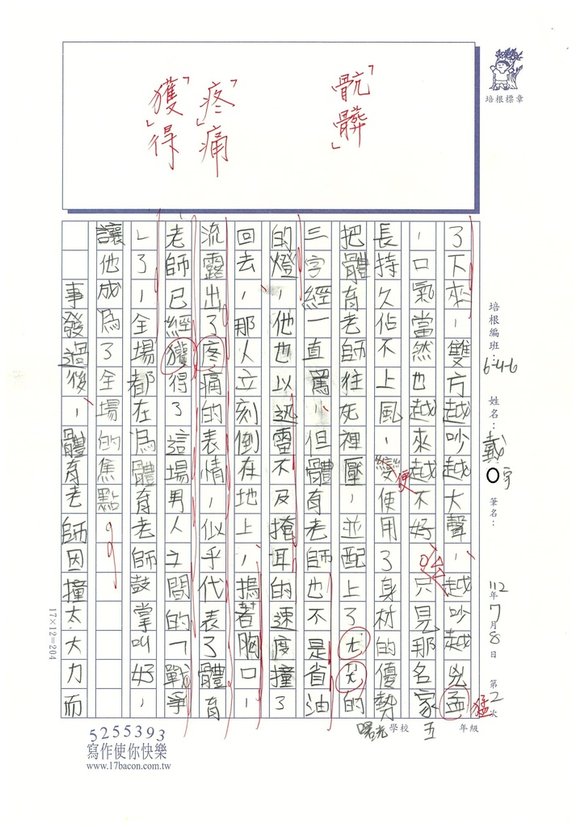 「骯髒」
「疼」痛
「獲」得
培根標章
培根編班：6-4-6 姓名：戴○宇 筆名：
112年7月8日 第2次
學校 五 年級
了下來，雙方越吵越大聲，越吵越兇孟
猛
，口氣當然也越來越不好，只見那名家
長持久佔不上風，變使用了身材的優勢
便
把體育老師往死裡壓，並配上了ㄤㄤ的
三字經一直罵，但體育老師也不是省油
的燈，他也以迅雷不及掩耳的速度撞了
回去，那人立刻倒在地上，摀著胸口，
流露出了疼痛的表情，似乎代表了體育
老師已經獲得了這場男人之間的「戰爭
」了，全場都在為體育老師鼓掌叫好，
讓他成為了全場的焦點。
事發過後，體育老師因撞太大力而
17×12=204
5255393
寫作使你快樂
www.17bacon.com.tw